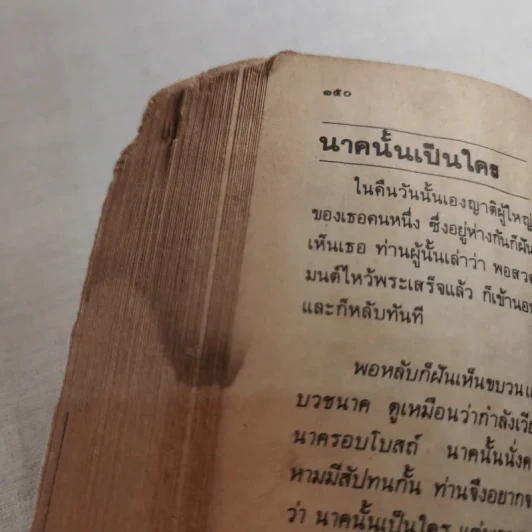 ๑๕๐
นาคนั้นเป็นใคร
ในคืนวันนั้นเองญาติผู้ใหญ่
ของเธอคนหนึ่ง ซึ่งอยู่ห่างกันก็ฝัน
เห็นเธอ ท่านผู้นั้นเล่าว่า พอสวด
มนต์ไหว้พระเสร็จแล้ว ก็เข้านอน
และก็หลับทันที
พอหลับก็ฝันเห็นขบวน
บวชนาค ดูเหมือนว่ากำลังเวียน
นาครอบโบสถ์ นาคนั้นนั่ง
หามมีสัปทนกั้น ท่านจึงอยาก
ว่า นาคนั้นเป็นใคร